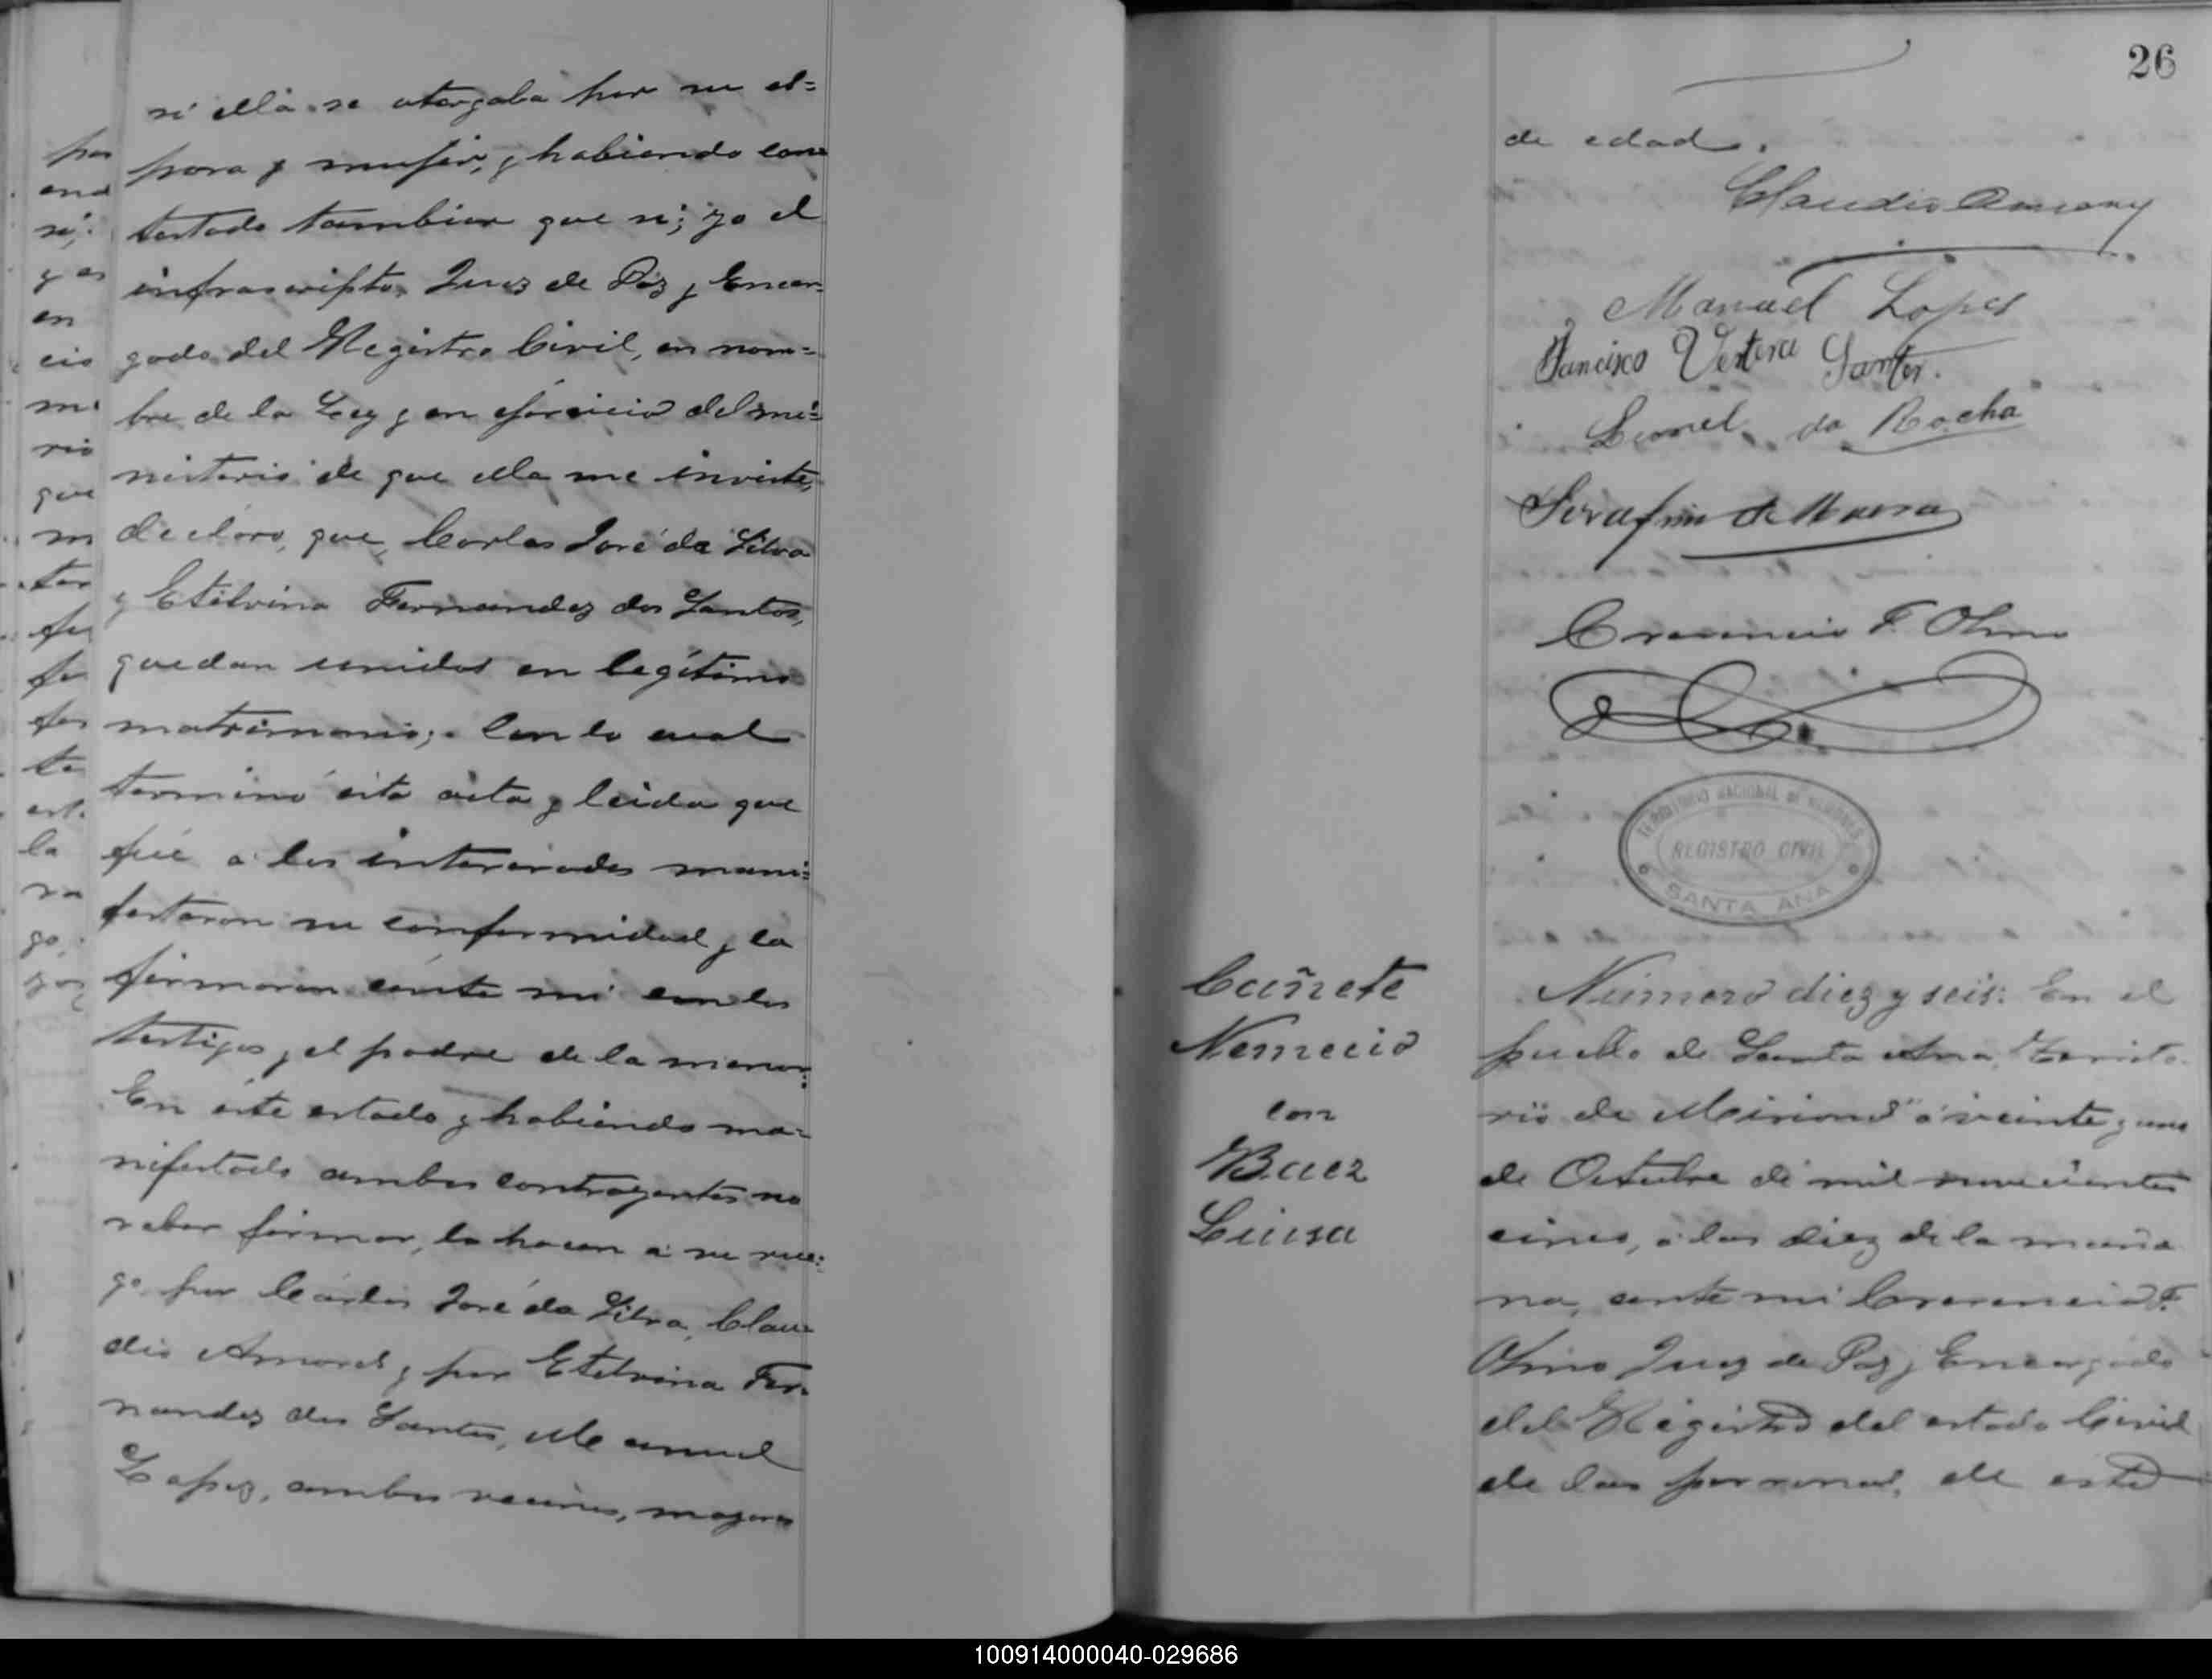 si ella se otorgaba por su es=
posa y mujer, y habiendo con
testado tambien que si; yo el
infrascripto, Juez de Paz y Encar=
gado del Registro Civil, en nom=
bre de la Ley y en ejercicio del mi=
nisterio de que ella me inviste,
declaro, que, Carlos José da Silva
y Etelvina Fernandez dos Santos,
quedan unidos en legítimo
matrimonio;. Con lo cual
terminó ésta acta y leida que
fué a los interesados mani=
festaron su conformidad y la
firmaron ante mi con los
testigos y el padre de la menor;
En éste estado y habiendo ma=
nifestado ambos contrayentes no
saber firmar, lo hacen a su rue=
go por Carlos José da Silva, Clau=
dio Amores y por Etelvina Fer=
nandez dos Santos, Manuel
Lopez, ambos vecinos, mayores
por
en
que
la
go,
26
de edad.
Claudio
Manuel Lopes
Francisco Santos.
Leonel da Rocha
Serafin de Moura
Crecencio F. Olmo
TERRITORIO NACIONAL DE MISIONES
REGISTRO CIVIL
SANTA ANA
Cañete
Nemecio
con
Baez
Luisa
Número diez y seis: En el
pueblo de Santa Ana, Territo
rio de Misiones á veinte y uno
de Octubre de mil novecientos
cinco, á las diez de la maña
na, ante mi Crecencio F.
Olmo Juez de Paz y Encargado
del Registro del estado Civil
de las personas, de este
100914000040-029686